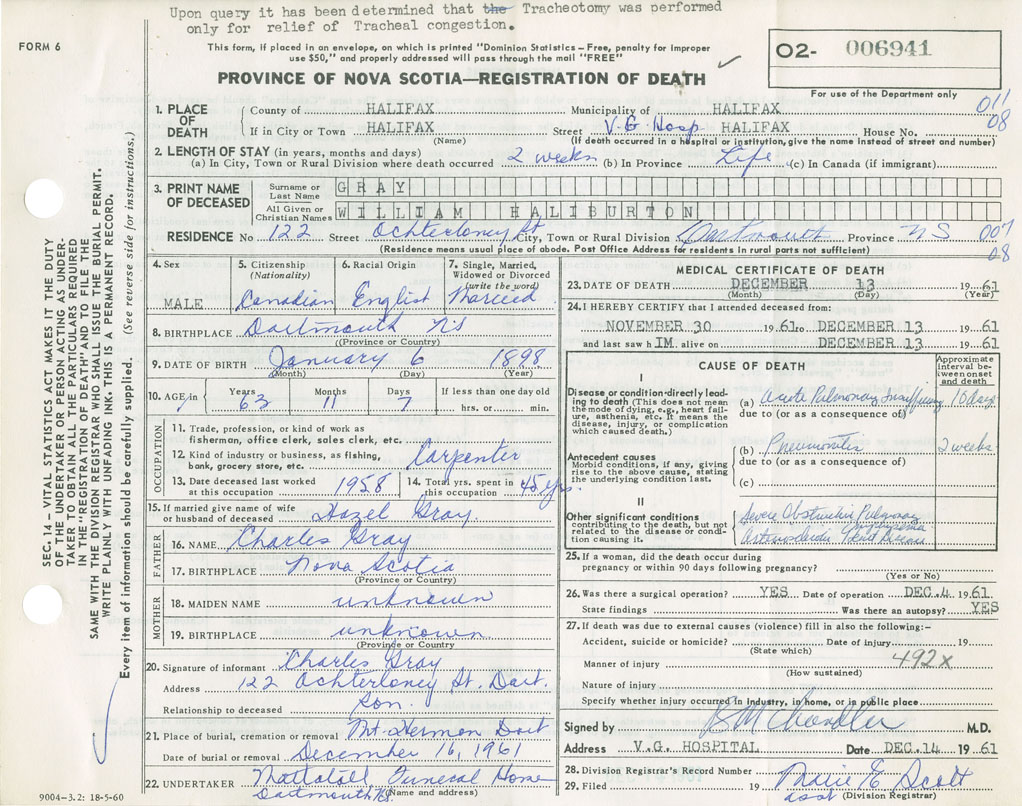 Upon query it has been determined that the Tracheotomy was performed
only for relief of Tracheal congestion.
FORM 6
This form, if placed in an envelope, on which is printed "Dominion Statistics – Free, penalty for improper
use $50," and properly addressed will pass through the mail "FREE"
02- 006941
PROVINCE OF NOVA SCOTIA—REGISTRATION OF DEATH
For use of the Department only
011
08
1. PLACE OF DEATH
County of HALIFAX Municipality of HALIFAX
If in City or Town HALIFAX Street V.G Hosp HALIFAX House No.
(Name) (If death occurred in a hospital or institution, give the name instead of street and number)
2. LENGTH OF STAY (in years, months and days)
(a) In City, Town or Rural Division where death occurred 2 weeks (b) In Province Life (c) In Canada (if immigrant)
3. PRINT NAME OF DECEASED
Surname or Last Name GRAY
All Given or Christian Names WILLIAM HALIBURTON
RESIDENCE No 122 Street Ochterloney St City, Town or Rural Division Dartmouth Province NS 007
08
(Residence means usual place of abode. Post Office Address for residents in rural parts not sufficient)
4. Sex MALE
5. Citizenship (Nationality) Canadian
6. Racial Origin English
7. Single, Married, Widowed or Divorced (write the word) Married
8. BIRTHPLACE Dartmouth NS
(Province or Country)
9. DATE OF BIRTH January 6 1898
(Month) (Day) (Year)
10. AGE in Years 63 Months 11 Days 7 If less than one day old hrs. or min.
OCCUPATION
11. Trade, profession, or kind of work as
fisherman, office clerk, sales clerk, etc.
12. Kind of industry or business, as fishing,
bank, grocery store, etc. Carpenter
13. Date deceased last worked at this occupation 1958 14. Total yrs. spent in this occupation 45 yrs.
15. If married give name of wife
or husband of deceased Hazel Gray
FATHER
16. NAME Charles Gray
17. BIRTHPLACE Nova Scotia
(Province or Country)
MOTHER
18. MAIDEN NAME unknown
19. BIRTHPLACE unknown
(Province or Country)
20. Signature of informant Charles Gray
Address 122 Ochterloney St. Dart.
Relationship to deceased Son.
21. Place of burial, cremation or removal Mt. Hermon Dart
Date of burial or removal December 16, 1961
22. UNDERTAKER Mattatall Funeral Home
Dartmouth NS. (Name and address)
MEDICAL CERTIFICATE OF DEATH
23. DATE OF DEATH DECEMBER 13 19 61
(Month) (Day) (Year)
24. I HEREBY CERTIFY that I attended deceased from:
NOVEMBER 30 19 61 to DECEMBER 13 19 61
and last saw h IM. alive on DECEMBER 13 19 61
CAUSE OF DEATH
Approximate interval between onset and death
I
Disease or condition directly leading to death (This does not mean the mode of dying, e.g., heart failure, asthenia, etc. It means the disease, injury, or complication which caused death.)
(a) Acute Pulmonary Insufficiency 10 days
due to (or as a consequence of)
Antecedent causes
Morbid conditions, if any, giving rise to the above cause, stating the underlying condition last.
(b) Pneumonitis 2 weeks
due to (or as a consequence of)
(c)
II
Other significant conditions contributing to the death, but not related to the disease or condition causing it.
Severe Obstructive Pulmonary
Emphysema
Arteriosclerotic Heart Disease
25. If a woman, did the death occur during
pregnancy or within 90 days following pregnancy?
(Yes or No)
26. Was there a surgical operation? YES Date of operation DEC. 4 19 61
State findings Was there an autopsy? YES
27. If death was due to external causes (violence) fill in also the following:–
Accident, suicide or homicide? Date of injury 19
(State which)
492x
Manner of injury
(How sustained)
Nature of injury
Specify whether injury occurred in industry, in home, or in public place
Signed by B M Chandler M.D.
Address V.G. HOSPITAL Date DEC. 14 19 61
28. Division Registrar's Record Number
29. Filed 19 Marie E Scott
asst (Division Registrar)
SEC. 14 – VITAL STATISTICS ACT MAKES IT THE DUTY
OF THE UNDERTAKER OR PERSON ACTING AS UNDER-
TAKER TO OBTAIN ALL THE PARTICULARS REQUIRED
IN THE "REGISTRATION OF DEATH" AND TO FILE THE
SAME WITH THE DIVISION REGISTRAR WHO SHALL ISSUE THE BURIAL PERMIT.
WRITE PLAINLY WITH UNFADING INK. THIS IS A PERMANENT RECORD.
Every item of information should be carefully supplied. (See reverse side for instructions.)
9004–3.2: 18-5-60